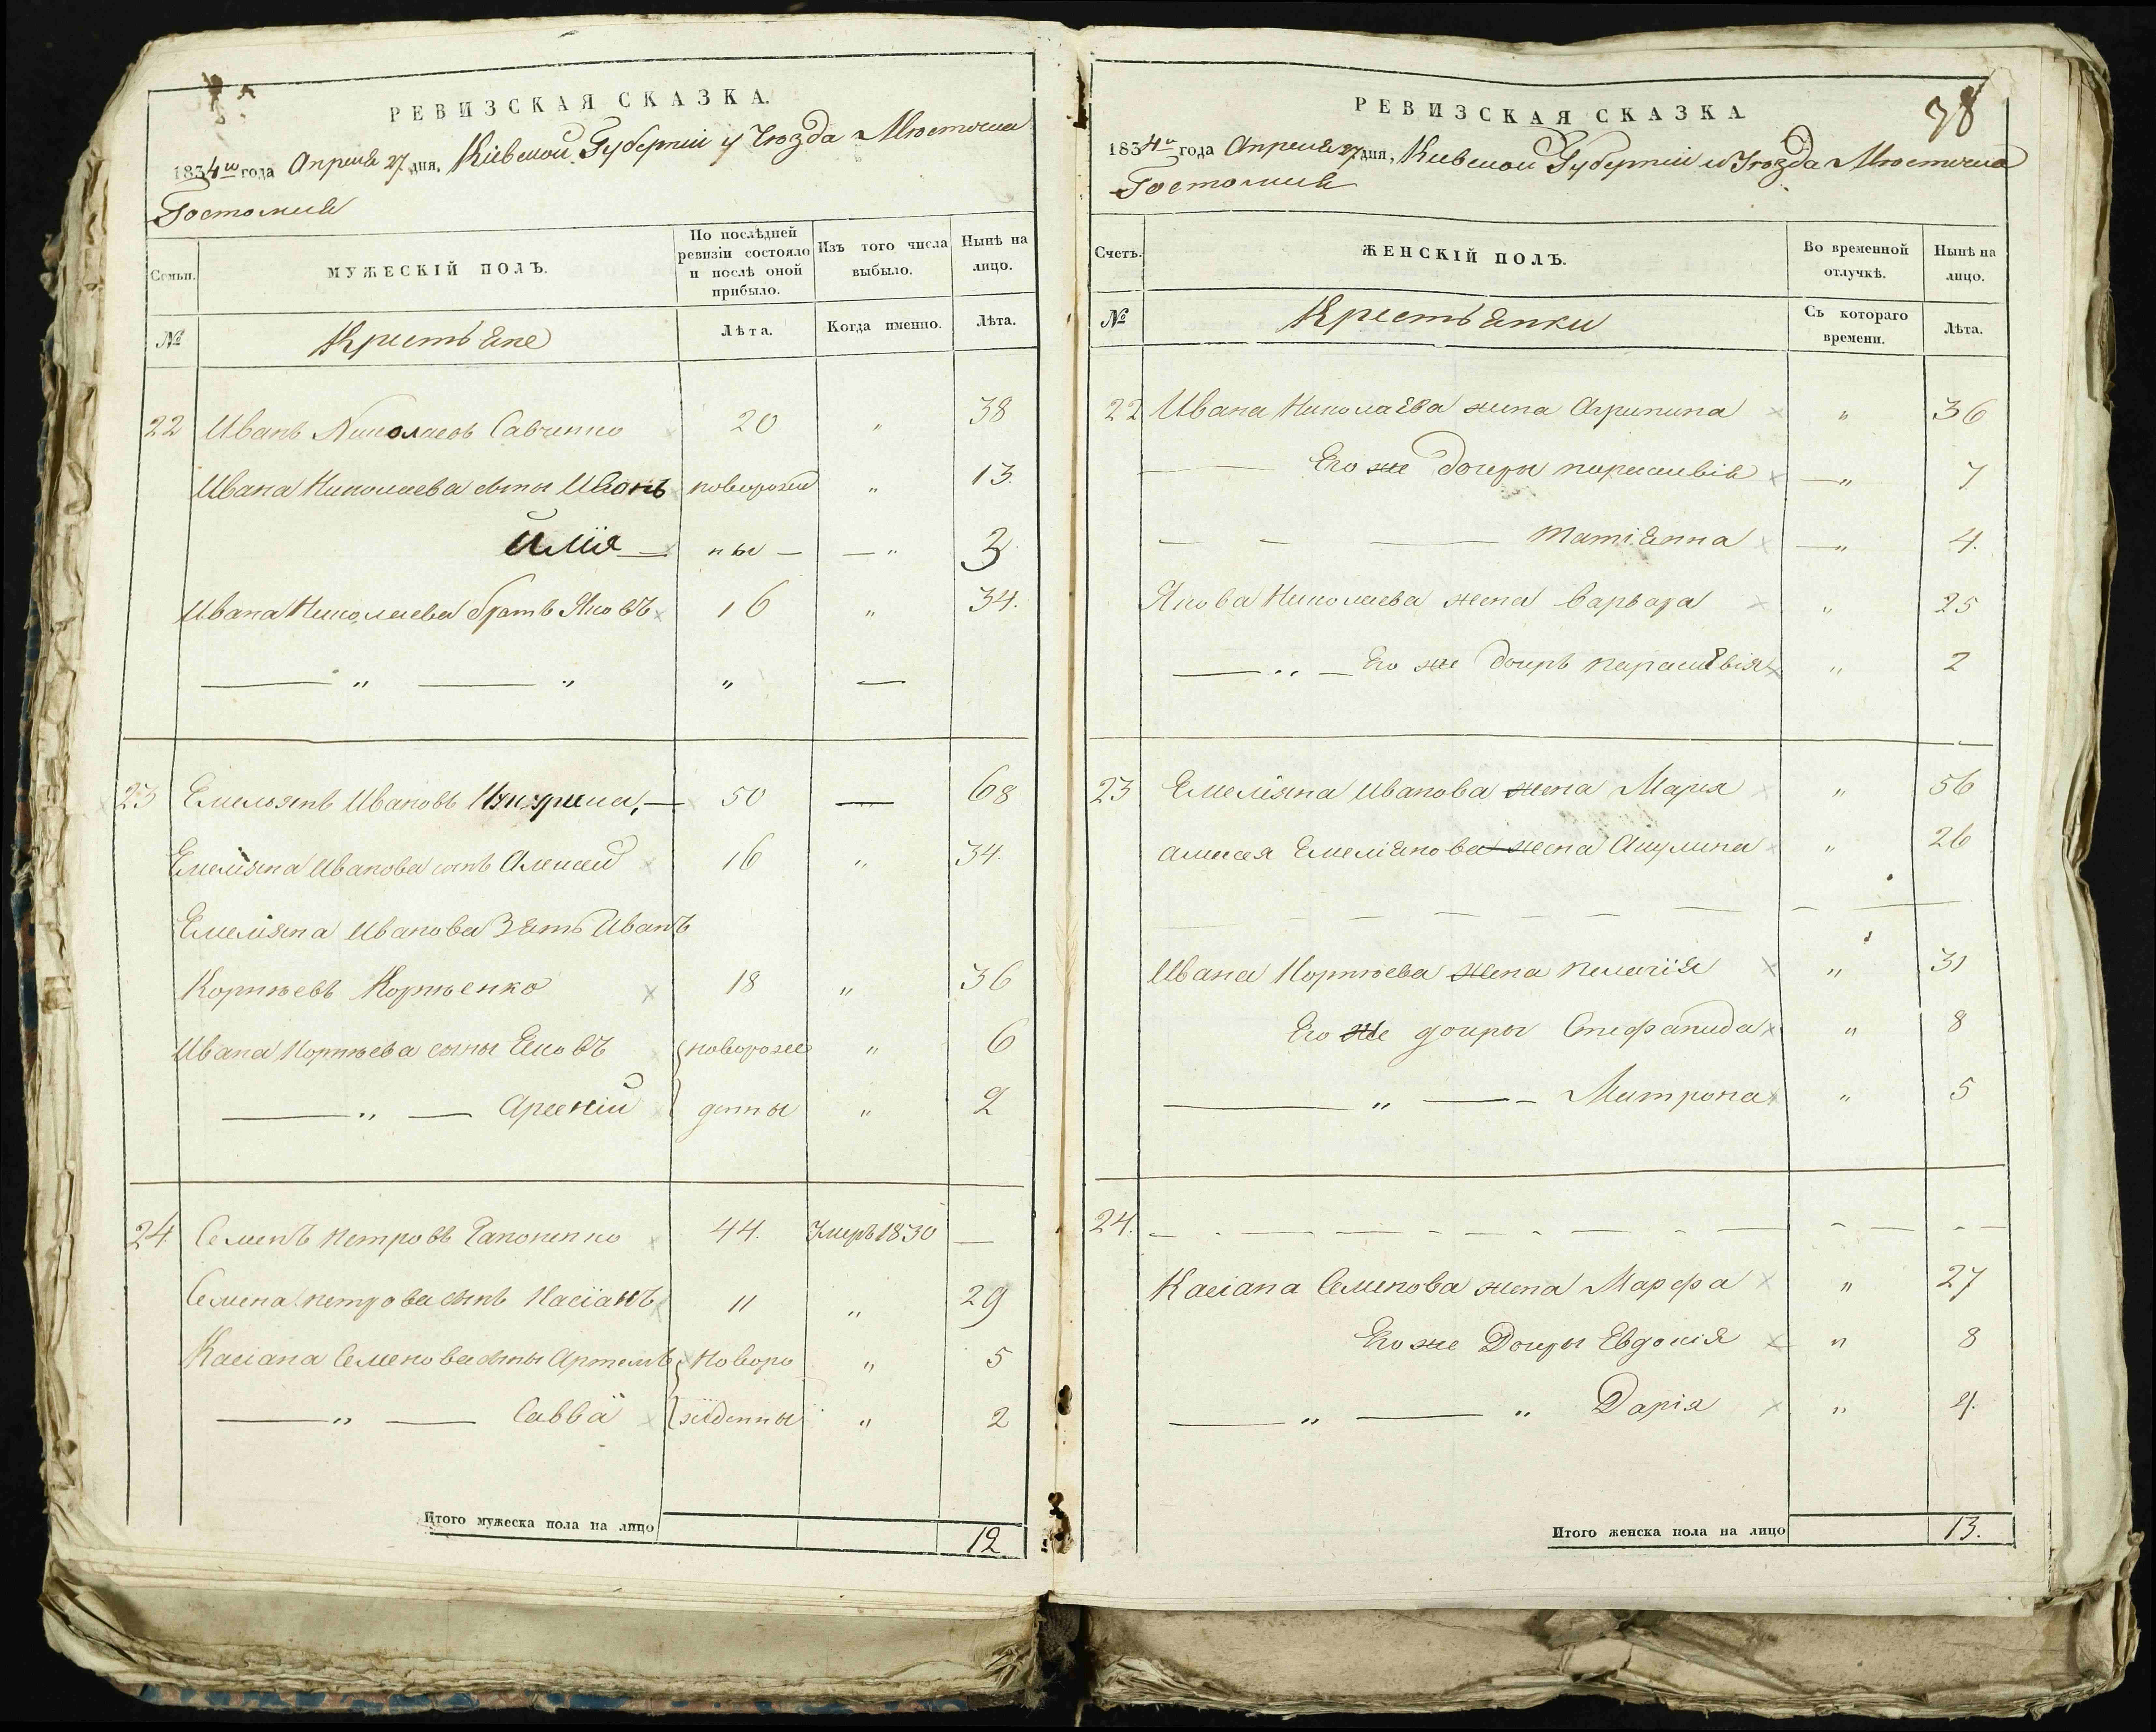 РЕВИЗСКАЯ СКАЗКА.
1834го года Апреля 27 дня, Кіевской Губерніи и Уѣзда Мѣстечка
Гостомля
Семьи.
МУЖЕСКІЙ ПОЛЪ.
По послѣдней ревизіи состояло и послѣ оной прибыло.
Изъ того числа выбыло.
Нынѣ на лицо.
№
Крестьяне
Лѣта.
Когда именно.
Лѣта.
22 Иванъ Николаевъ Савченко 20 " 38
Ивана Николаева сыны Иванъ новорожде " 13.
Илія — ны — — " 3
Ивана Николаева братъ Яковъ 16 " 34.
— " — " " —
23 Емельянъ Ивановъ — 50 — 68
Емеліяна Иванова сынъ Алексей 16 " 34.
Емеліяна Иванова Зять Иванъ
Корнѣевъ Корнѣенко 18 " 36
Ивана Корнѣева сыны Яковъ новорож " 6
— " — Арсеній денны " 2
24 Семенъ Петровъ Гапоненко 44. Умеръ 1830 —
Семена Петрова сынъ Касіанъ 11 " 29
Касіана Семенова сыны Артемъ новоро " 5
— " — Савва жденны " 2
Итого мужеска пола на лицо 12
РЕВИЗСКАЯ СКАЗКА
38
1834го года Апреля 27 дня, Кіевской Губерніи и Уѣзда Мѣстечка
Гостомля
Счетъ.
ЖЕНСКІЙ ПОЛЪ.
Во временной отлучкѣ.
Нынѣ на лицо.
№
Крестьянки
Съ котораго времени.
Лѣта.
22 Ивана Николаева жена Агрипина " 36
— — Его же дочери параскевія — " 7
— — — Татіянна — " 4.
Якова Николаева жена Варвара " 25
— " — Его же дочерь параскевія " 2
23 Емеліяна Иванова жена Марія " 56
Алексея Емеліянова жена Акулина " 26
— — — — — — — —
Ивана Корнѣева жена пелагія " 31
Его же дочеры Стефанида " 8
— " — — Матрона " 5
24. — - — — — - — - — — — - — - —
Касіана Семенова жена Марфа " 27
Его же Дочеры Евдокія " 8
— " — " Дарія " 4.
Итого женска пола на лицо 13.